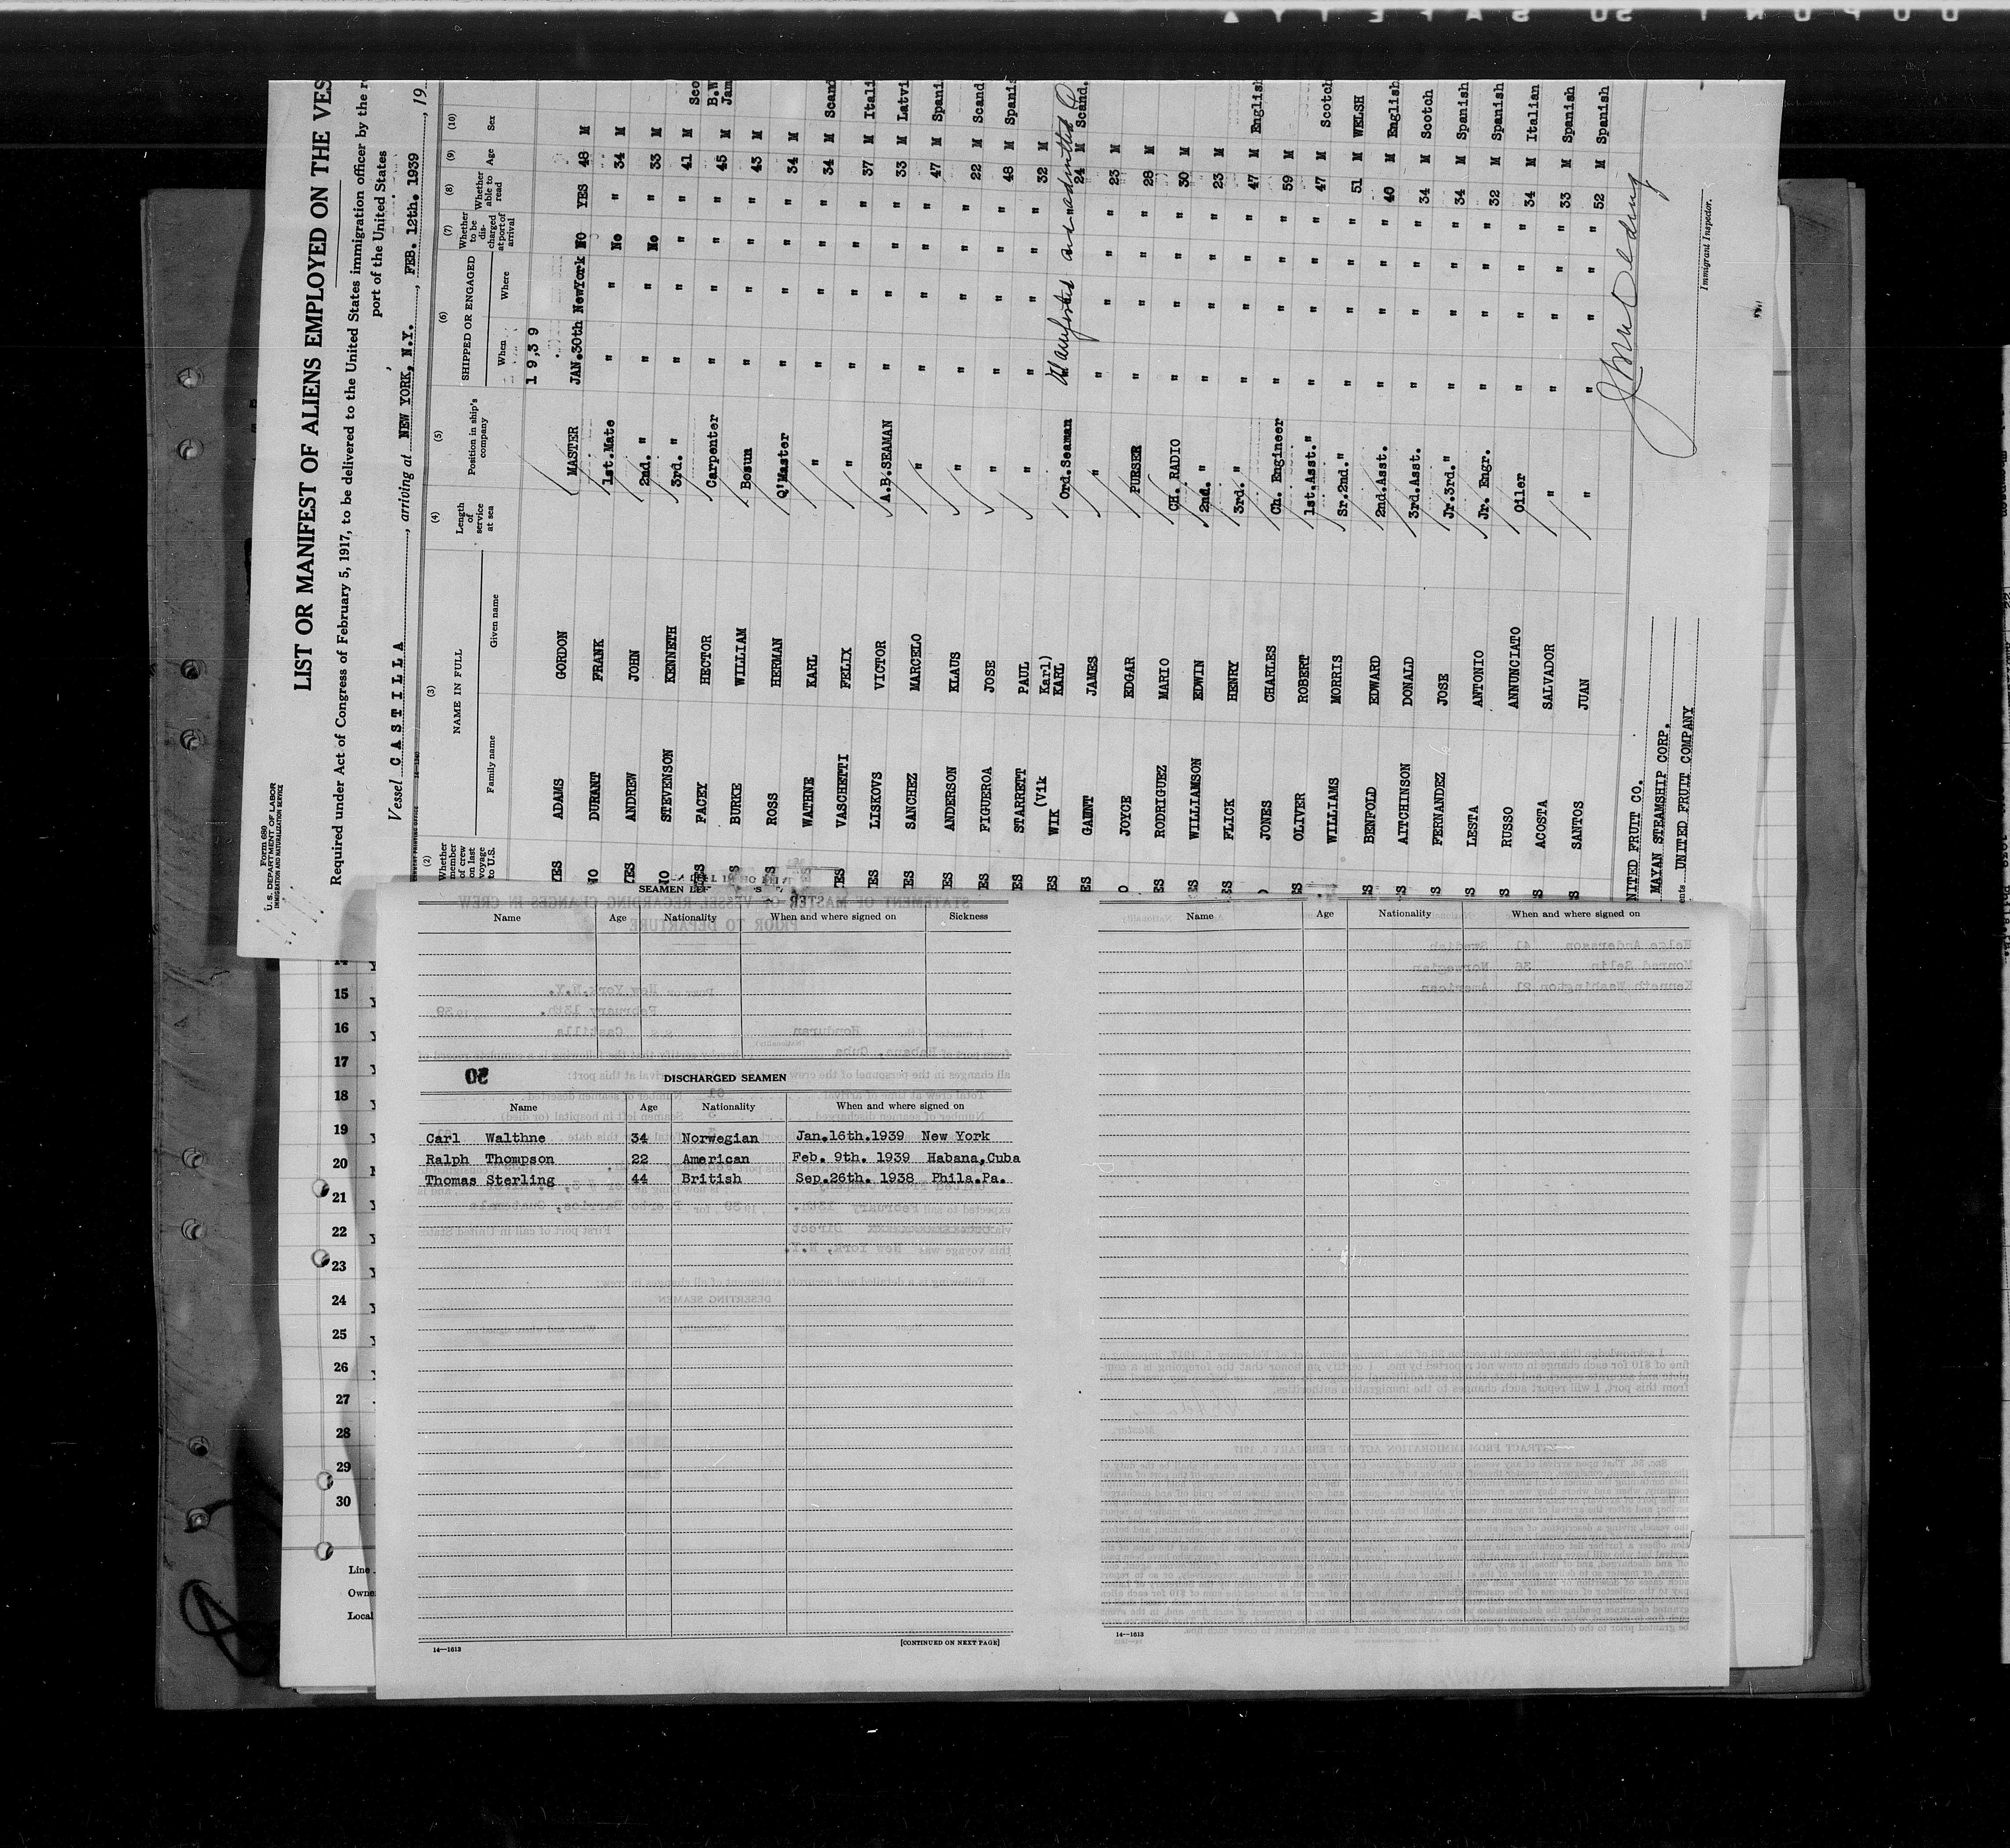 Form 680
U.S. DEPARTMENT OF LABOR
IMMIGRATION AND NATURALIZATION SERVICE
LIST OR MANIFEST OF ALIENS EMPLOYED ON THE VES
Required under Act of Congress of February 5, 1917, to be delivered to the United States immigration officer by the r
port of the United States
Vessel CASTILLA, arriving at NEW YORK, N.Y., FEB. 12th. 1939, 19
(2) (3) (4) (5) (6) (7) (8) (9) (10)
Whether member of crew on last voyage to U.S. NAME IN FULL Length of service at sea Position in ship's company SHIPPED OR ENGAGED Whether to be discharged at port of arrival Whether able to read Age Sex
Family name Given name When Where
1939
YES ADAMS GORDON MASTER JAN.30th NewYork NO YES 48 M
NO DURANT FRANK 1st.Mate " " No " 34 M
YES ANDREW JOHN 2nd. " " " No " 33 M
NO STEVENSON KENNETH 3rd. " " " " " 41 M Sco
YES FACEY HECTOR Carpenter " " " " 45 M B.W Jam
S BURKE WILLIAM Bosun " " " " 43 M
S ROSS HERMAN Q'Master " " " " 34 M
WATHNE KARL " " " " " 34 M Scand
YES VASCHETTI FELIX " " " " " 37 M Itali
ES LISKOVS VICTOR A.B.SEAMAN " " " " 33 M Latvi
ES SANCHEZ MARCELO " " " " " 47 M Spani
ES ANDERSON KLAUS " " " " " 22 M Scand
ES FIGUEROA JOSE " " " " " 48 M Spanis
ES STARRETT PAUL " " " " " 32 M
(Vik Karl)
ES WIK KARL Ord.Seaman Manifested and admitted 24 M Scand.
ES GAUNT JAMES " " " " " 23 M
O JOYCE EDGAR PURSER " " " " 28 M
ES RODRIGUEZ MARIO CH. RADIO " " " " 30 M
ES WILLIAMSON EDWIN 2nd. " " " " " 23 M
ES FLICK HENRY 3rd. " " " " " 47 M English
JONES CHARLES Ch. Engineer " " " " 59 M
ES OLIVER ROBERT 1st.Asst." " " " " 47 M Scotch
WILLIAMS MORRIS Sr.2nd." " " " " 51 M WELSH
S BENFOLD EDWARD 2nd.Asst. " " " " 40 M English
S AITCHINSON DONALD 3rd.Asst. " " " " 34 M Scotch
S FERNANDEZ JOSE Jr.3rd." " " " " 34 M Spanish
S LESTA ANTONIO Jr. Engr. " " " " 32 M Spanish
S RUSSO ANNUNCIATO Oiler " " " " 34 M Italian
S ACOSTA SALVADOR " " " " " 33 M Spanish
S SANTOS JUAN " " " " " 52 M Spanish
NITED FRUIT CO.
MAYAN STEAMSHIP CORP.
ents UNITED FRUIT COMPANY
Immigrant Inspector.
14
15
16
17
18
19
20
21
22
23
24
25
26
27
28
29
30
Line
Owne
Local
Name Age Nationality When and where signed on Sickness
DISCHARGED SEAMEN
Name Age Nationality When and where signed on
Carl Walthne 34 Norwegian Jan.16th.1939 New York
Ralph Thompson 22 American Feb. 9th. 1939 Habana,Cuba
Thomas Sterling 44 British Sep.26th. 1938 Phila.Pa.
14—1613
[CONTINUED ON NEXT PAGE]
Name Age Nationality When and where signed on
14—1613